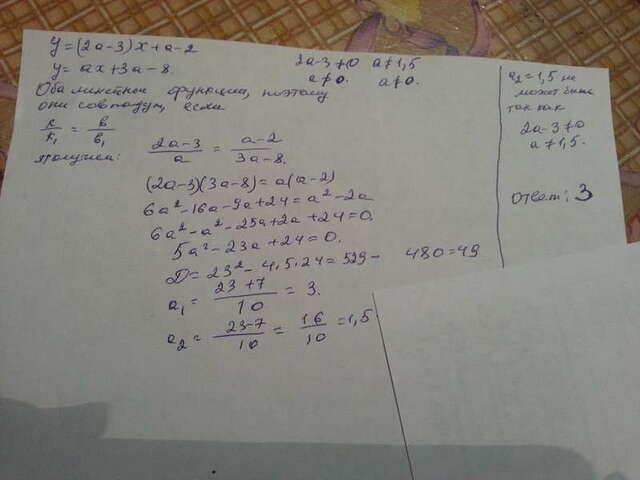 y=(2a-3)x+a-2
y= ax+3a-8.
2a-3≠0 a≠1,5
a≠0. a≠0.
Оба линейные функции, поэтому
они совпадут, если
k/k₁ = b/b₁
получим:
(2a-3)/a = (a-2)/(3a-8).
(2a-3)(3a-8)=a(a-2)
6a²-16a-9a+24=a²-2a
6a²-a²-25a+2a+24=0.
5a²-23a+24=0.
D=23²-4·5·24=529- 480=49
a₁= (23+7)/10 = 3.
a₂= (23-7)/10 = 16/10 =1,5
a₂=1,5 не
может быть
так как
2a-3≠0
a≠1,5.
Ответ: 3